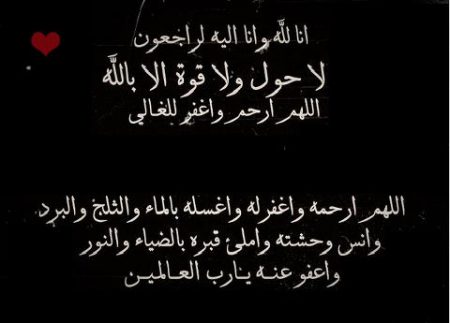 انا لله وانا اليه لراجعون
لا حول ولا قوة الا بالله
اللهم ارحم واغفر للغالي
اللهم ارحمه واغفرله واغسله بالماء والثلج والبرد
وانس وحشته واملئ قبره بالضياء والنور
واعفو عنه يارب العالمين